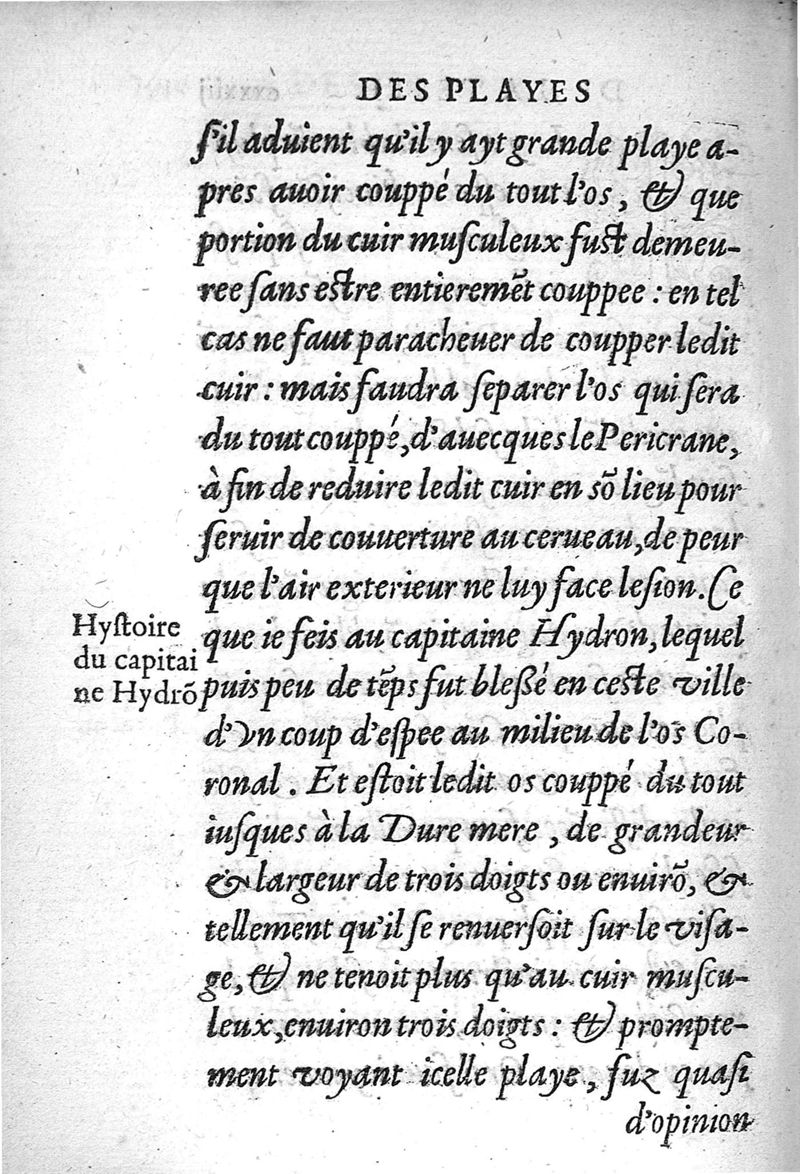 DES PLAYES
s'il aduient qu'il y ayt grande playe a-
pres auoir couppé du tout l'os, & que
portion du cuir musculeux fust demeu-
ree sans estre entieremẽt couppee : en tel
cas ne faut paracheuer de coupper ledit
cuir : mais faudra separer l'os qui sera
du tout couppé, d'auecques le Pericrane,
à fin de reduire ledit cuir en sõ lieu pour
seruir de couuerture au cerueau, de peur
que l'air exterieur ne luy face lesion. Ce
que ie feis au capitaine Hydron, lequel
puis peu de tẽps fut blessé en ceste ville
d'vn coup d'espee au milieu de l'os Co-
ronal. Et estoit ledit os couppé du tout
iusques à la Dure mere, de grandeur
& largeur de trois doigts ou enuirõ, &
tellement qu'il se renuersoit sur le visa-
ge, & ne tenoit plus qu'au cuir muscu-
leux, enuiron trois doigts : & prompte-
ment voyant icelle playe, fuz quasi
d'opinion
Hystoire
du capitai
ne Hydrõ